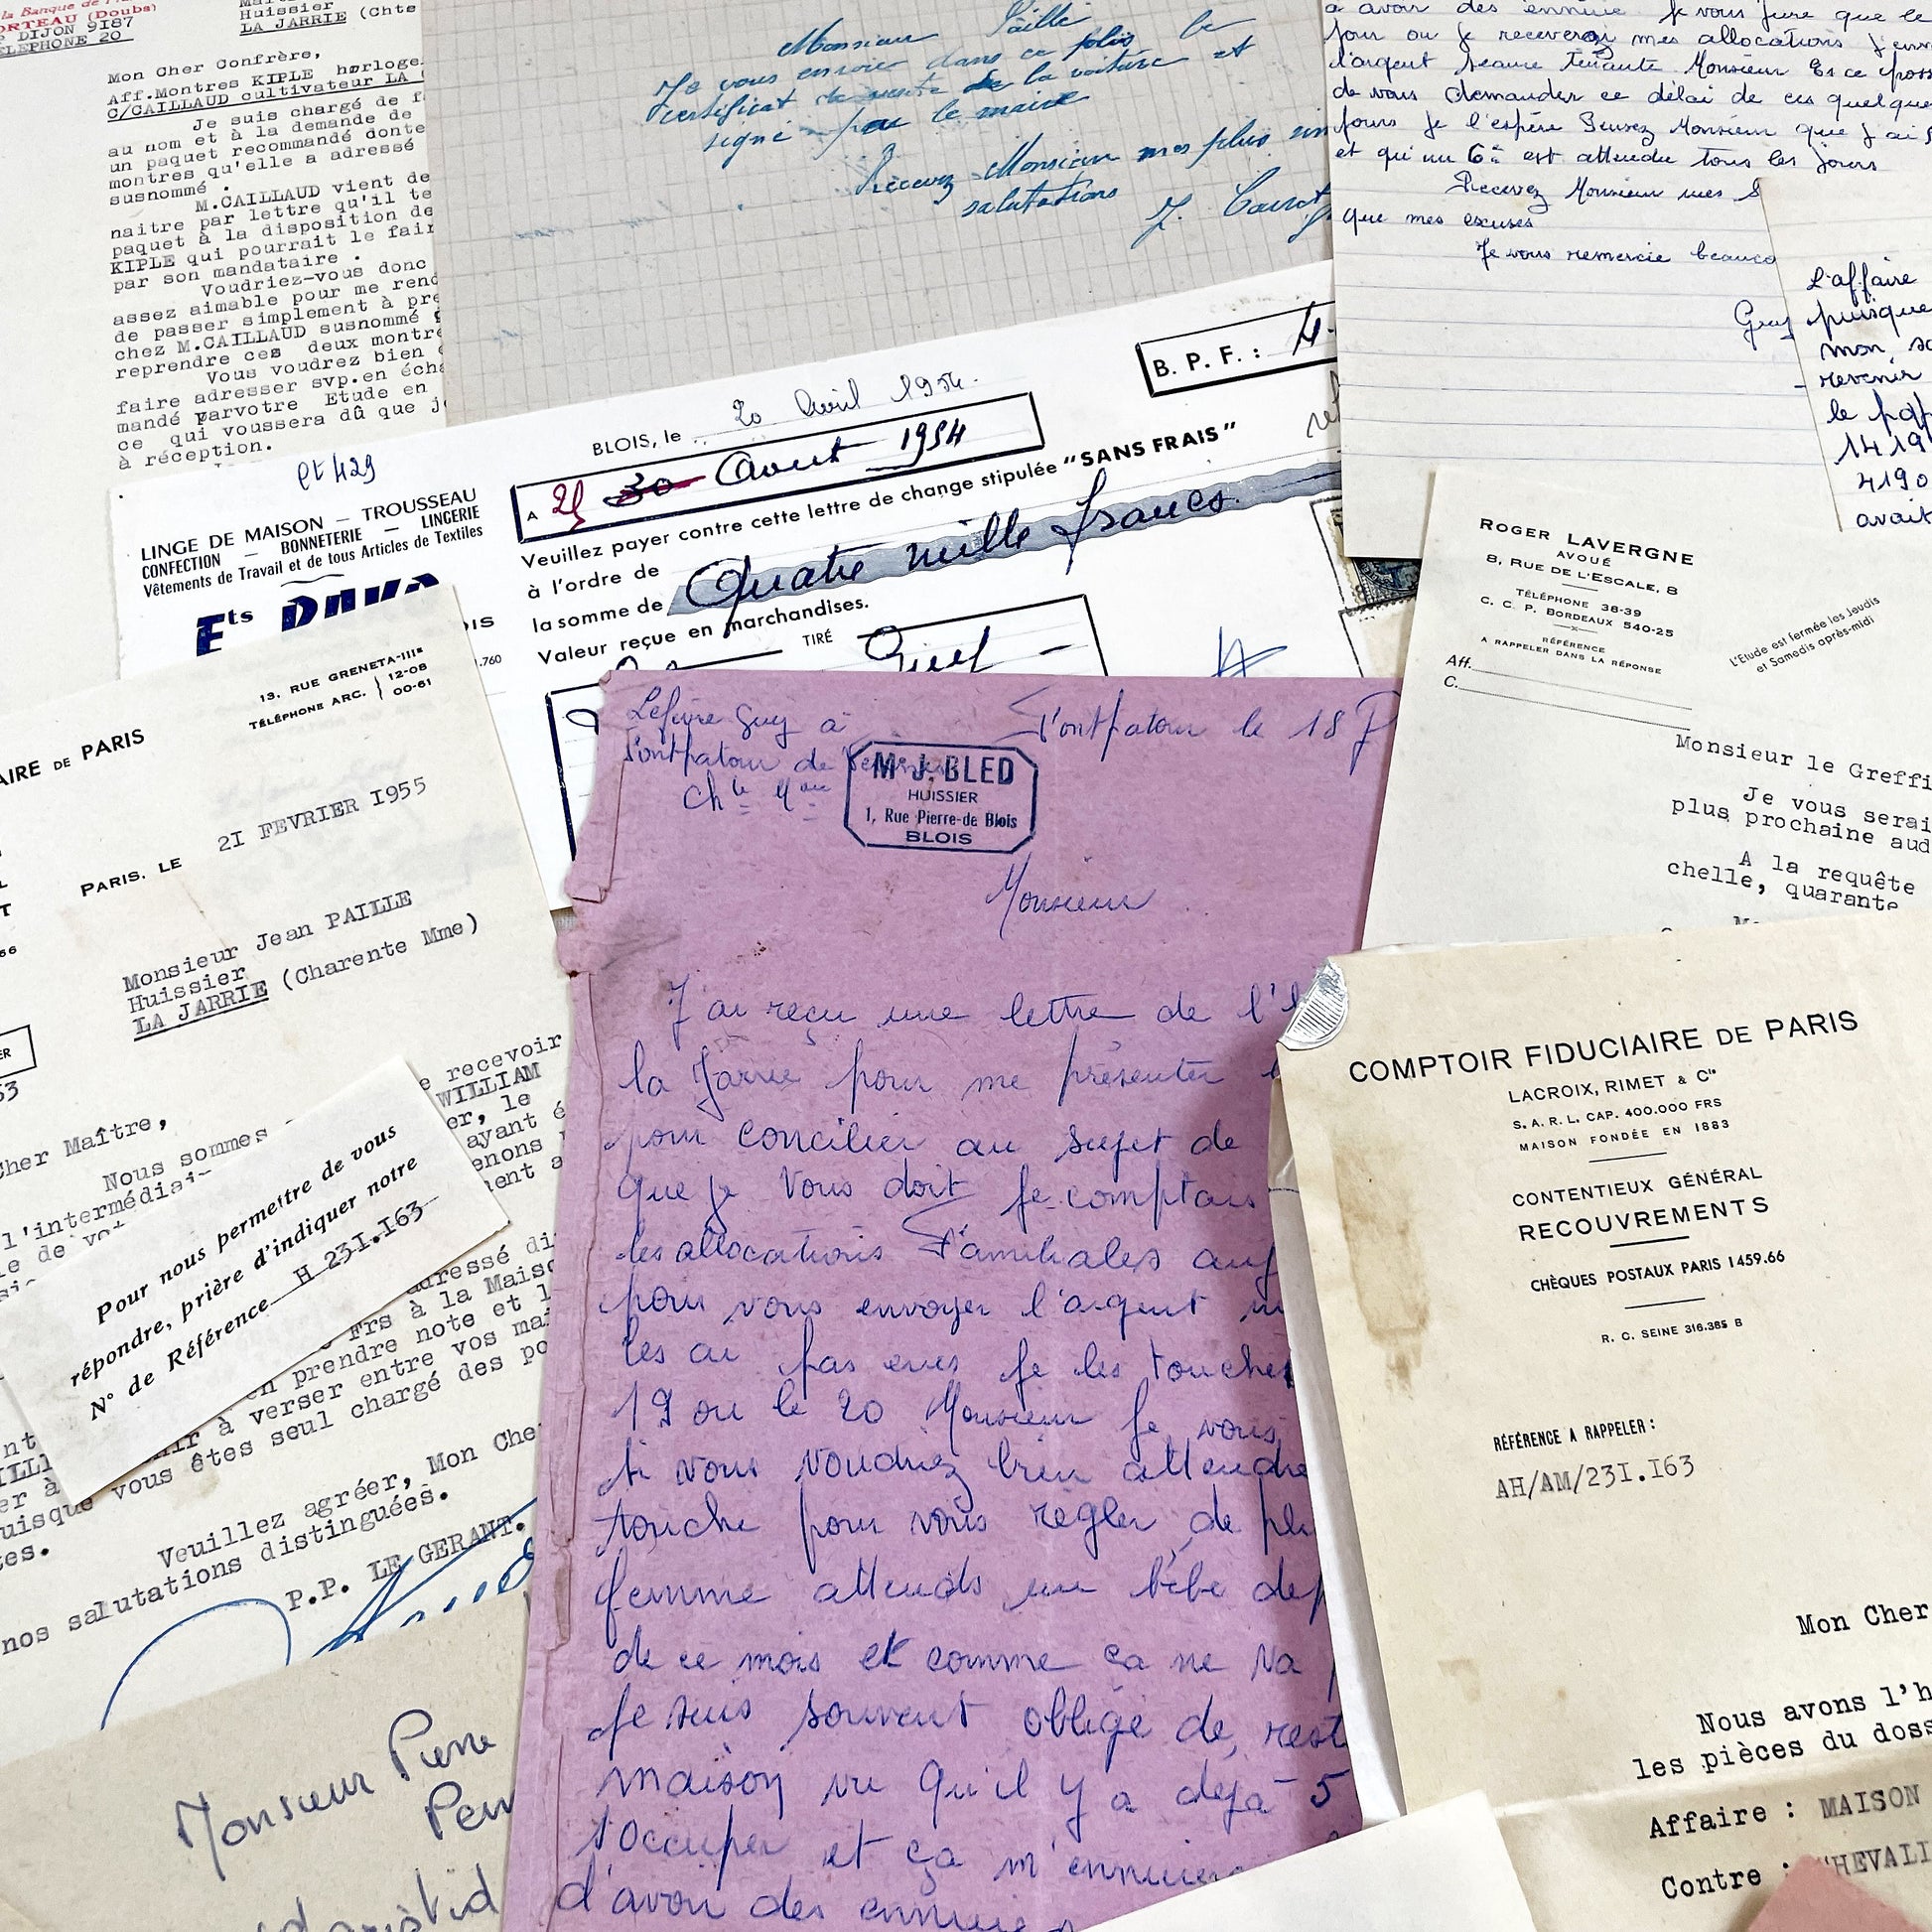 la Banque de
MORTEAU (Doubs)
DIJON 9187
TELEPHONE 20
Huissier
LA JARRIE (Chte
Mon Cher Confrère,
Aff.Montres KIPLE horloge
C/CAILLAUD cultivateur LA
Je suis chargé de f
au nom et à la demande de
un paquet recommandé donte
montres qu'elle a adressé
susnommé .
M.CAILLAUD vient de
naitre par lettre qu'il te
paquet à la disposition de
KIPLE qui pourrait le fair
par son mandataire .
Voudriez-vous donc
assez aimable pour me rend
de passer simplement à pre
chez M.CAILLAUD susnommé
reprendre ces deux montre
Vous voudrez bien
faire adresser svp.en écha
mandé parvotre Etude en
ce qui voussera dû que je
à réception.
Monsieur Paille
Je vous envoie dans ce polis le
certificat de vente de la voiture et
signé par le maire
Recevez Monsieur mes plus
salutations
a avoir des ennuie je vous jure que le
jour ou je receveraz mes allocations j'env
l'argent seance tenante Monsieur Es ce poss
de vous demander ce délai de ces quelque
jours je l'espère Pensez Monsieur que j'ai
et qu'un 6è est attendu tous les jours
Recevez Monsieur mes S
que mes excuses
Je vous remercie beauco
Guy
L'affaire
puisque
mon
revenir
le pap
1419
4190
avait
et 429
LINGE DE MAISON – TROUSSEAU
CONFECTION – BONNETERIE – LINGERIE
Vêtements de Travail et de tous Articles de Textiles
Ets
BLOIS, le 20 Avril 1954.
B. P. F. : 4
A 25 30 Aout 1954
Veuillez payer contre cette lettre de change stipulée "SANS FRAIS"
à l'ordre de
la somme de Quatre mille francs.
Valeur reçue en marchandises.
TIRÉ
OIS
.760
ROGER LAVERGNE
AVOUÉ
8, RUE DE L'ESCALE, 8
TÉLÉPHONE 38-39
C. C. P. BORDEAUX 540-25
RÉFÉRENCE
A RAPPELER DANS LA RÉPONSE
Aff.
C.
L'Etude est fermée les Jeudis
et Samedis après-midi
Monsieur le Greffi
Je vous serai
plus prochaine aud
A la requête
chelle, quarante
13, RUE GRENETA-IIIe
TÉLÉPHONE ARC. 12-08
00-61
AIRE DE PARIS
PARIS, LE 21 FEVRIER 1955
Monsieur Jean PAILLE
Huissier
LA JARRIE (Charente Mme)
Cher Maître,
Nous sommes
l'intermédiai
e recevoir
WILLIAM
er, le
ayant é
enons
ent a
Pour nous permettre de vous
répondre, prière d'indiquer notre
N° de Référence H 231.163
adressé di
Frs à la Maiso
en prendre note et l
à verser entre vos mai
puisque vous êtes seul chargé des po
Veuillez agréer, Mon Che
nos salutations distinguées.
P.P. LE GERANT.
Monsieur Pierre
Lefevre Guy à
Pontpatour le 18 F
Pontpatour de
Chte Mme
Me J. BLED
HUISSIER
1, Rue Pierre-de Blois
BLOIS
Monsieur
J'ai reçu une lettre de l'
la Jarrie pour me présenter
pour concilier au sujet de
que je vous doit je comptais
les allocations Familiales auj
pour vous envoyer l'argent
les ai pas eues je les touches
19 ou le 20 Monsieur je vous
si vous voudriez bien attendre
touche pour vous règler, de pl
femme attends un bébé dep
de ce mois et comme ça ne va
Je suis souvent obligé de, rest
maison vu qu'il y a déjà 5
s'occuper et ça m'ennuiera
d'avoir des ennuie
COMPTOIR FIDUCIAIRE DE PARIS
LACROIX, RIMET & Cie
S. A. R. L. CAP. 400.000 FRS
MAISON FONDÉE EN 1883
CONTENTIEUX GÉNÉRAL
RECOUVREMENTS
CHÈQUES POSTAUX PARIS 1459.66
R. C. SEINE 316.385 B
RÉFÉRENCE A RAPPELER :
AH/AM/231.163
Mon Cher
Nous avons l'h
les pièces du doss
Affaire : MAISON
Contre : CHEVALI